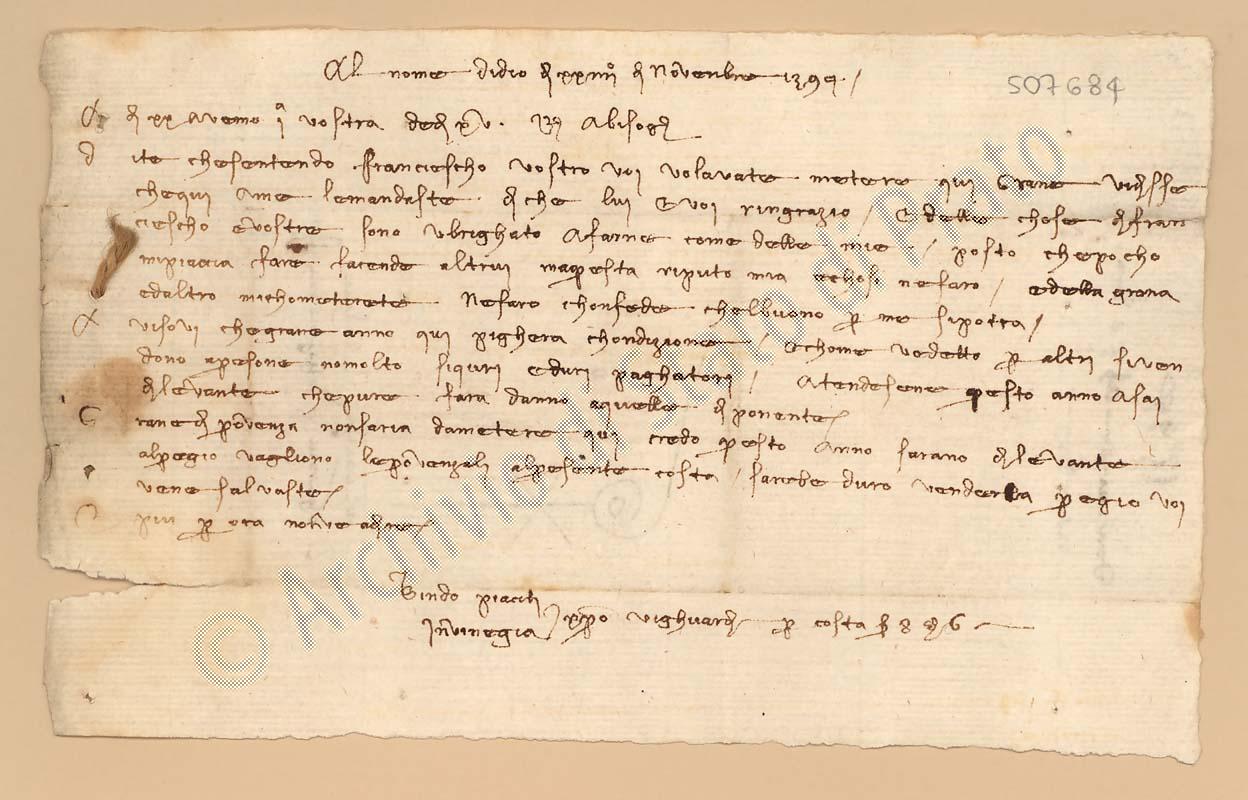 Al nome didio di xxiiiiº di Novenbre 1394 /
507684
A di xx avemo iª vostra dedi xv. Rº abisogni
D ite chesentendo Franciescho vostro voi volavate metere qui Grane vidisse
chequi ame lemandaste di che lui e voi ringrazio / E delle chose di fran
ciescho e vostre sono ubrighato afarne come delle mie / posto chepocho
mipiaccia fare facende altrui maquesta riputo mia echosi nefaro / edella grana
edaltro michometerete Nefaro chonfede chelbuono per me sipotra /
A visovi chegrane anno qui pighera chondizione / Echome vedetto per altri siven
dono apersone nomolto siquri e duri paghatori / Atendesene questo anno asai
dilevante chepure fara danno aquelle di ponente
G rane di provenza nonsaria dametere qui credo questo anno sarano dilevante
alpegio vagliono leprovenzali alpresente costa / sarebe duro venderlla pegio voi
vene salvaste
piu per ora nonve adire
Bindo piaciti
Invinegia xpo vighuardi per costa
© Archivio di Stato di Prato